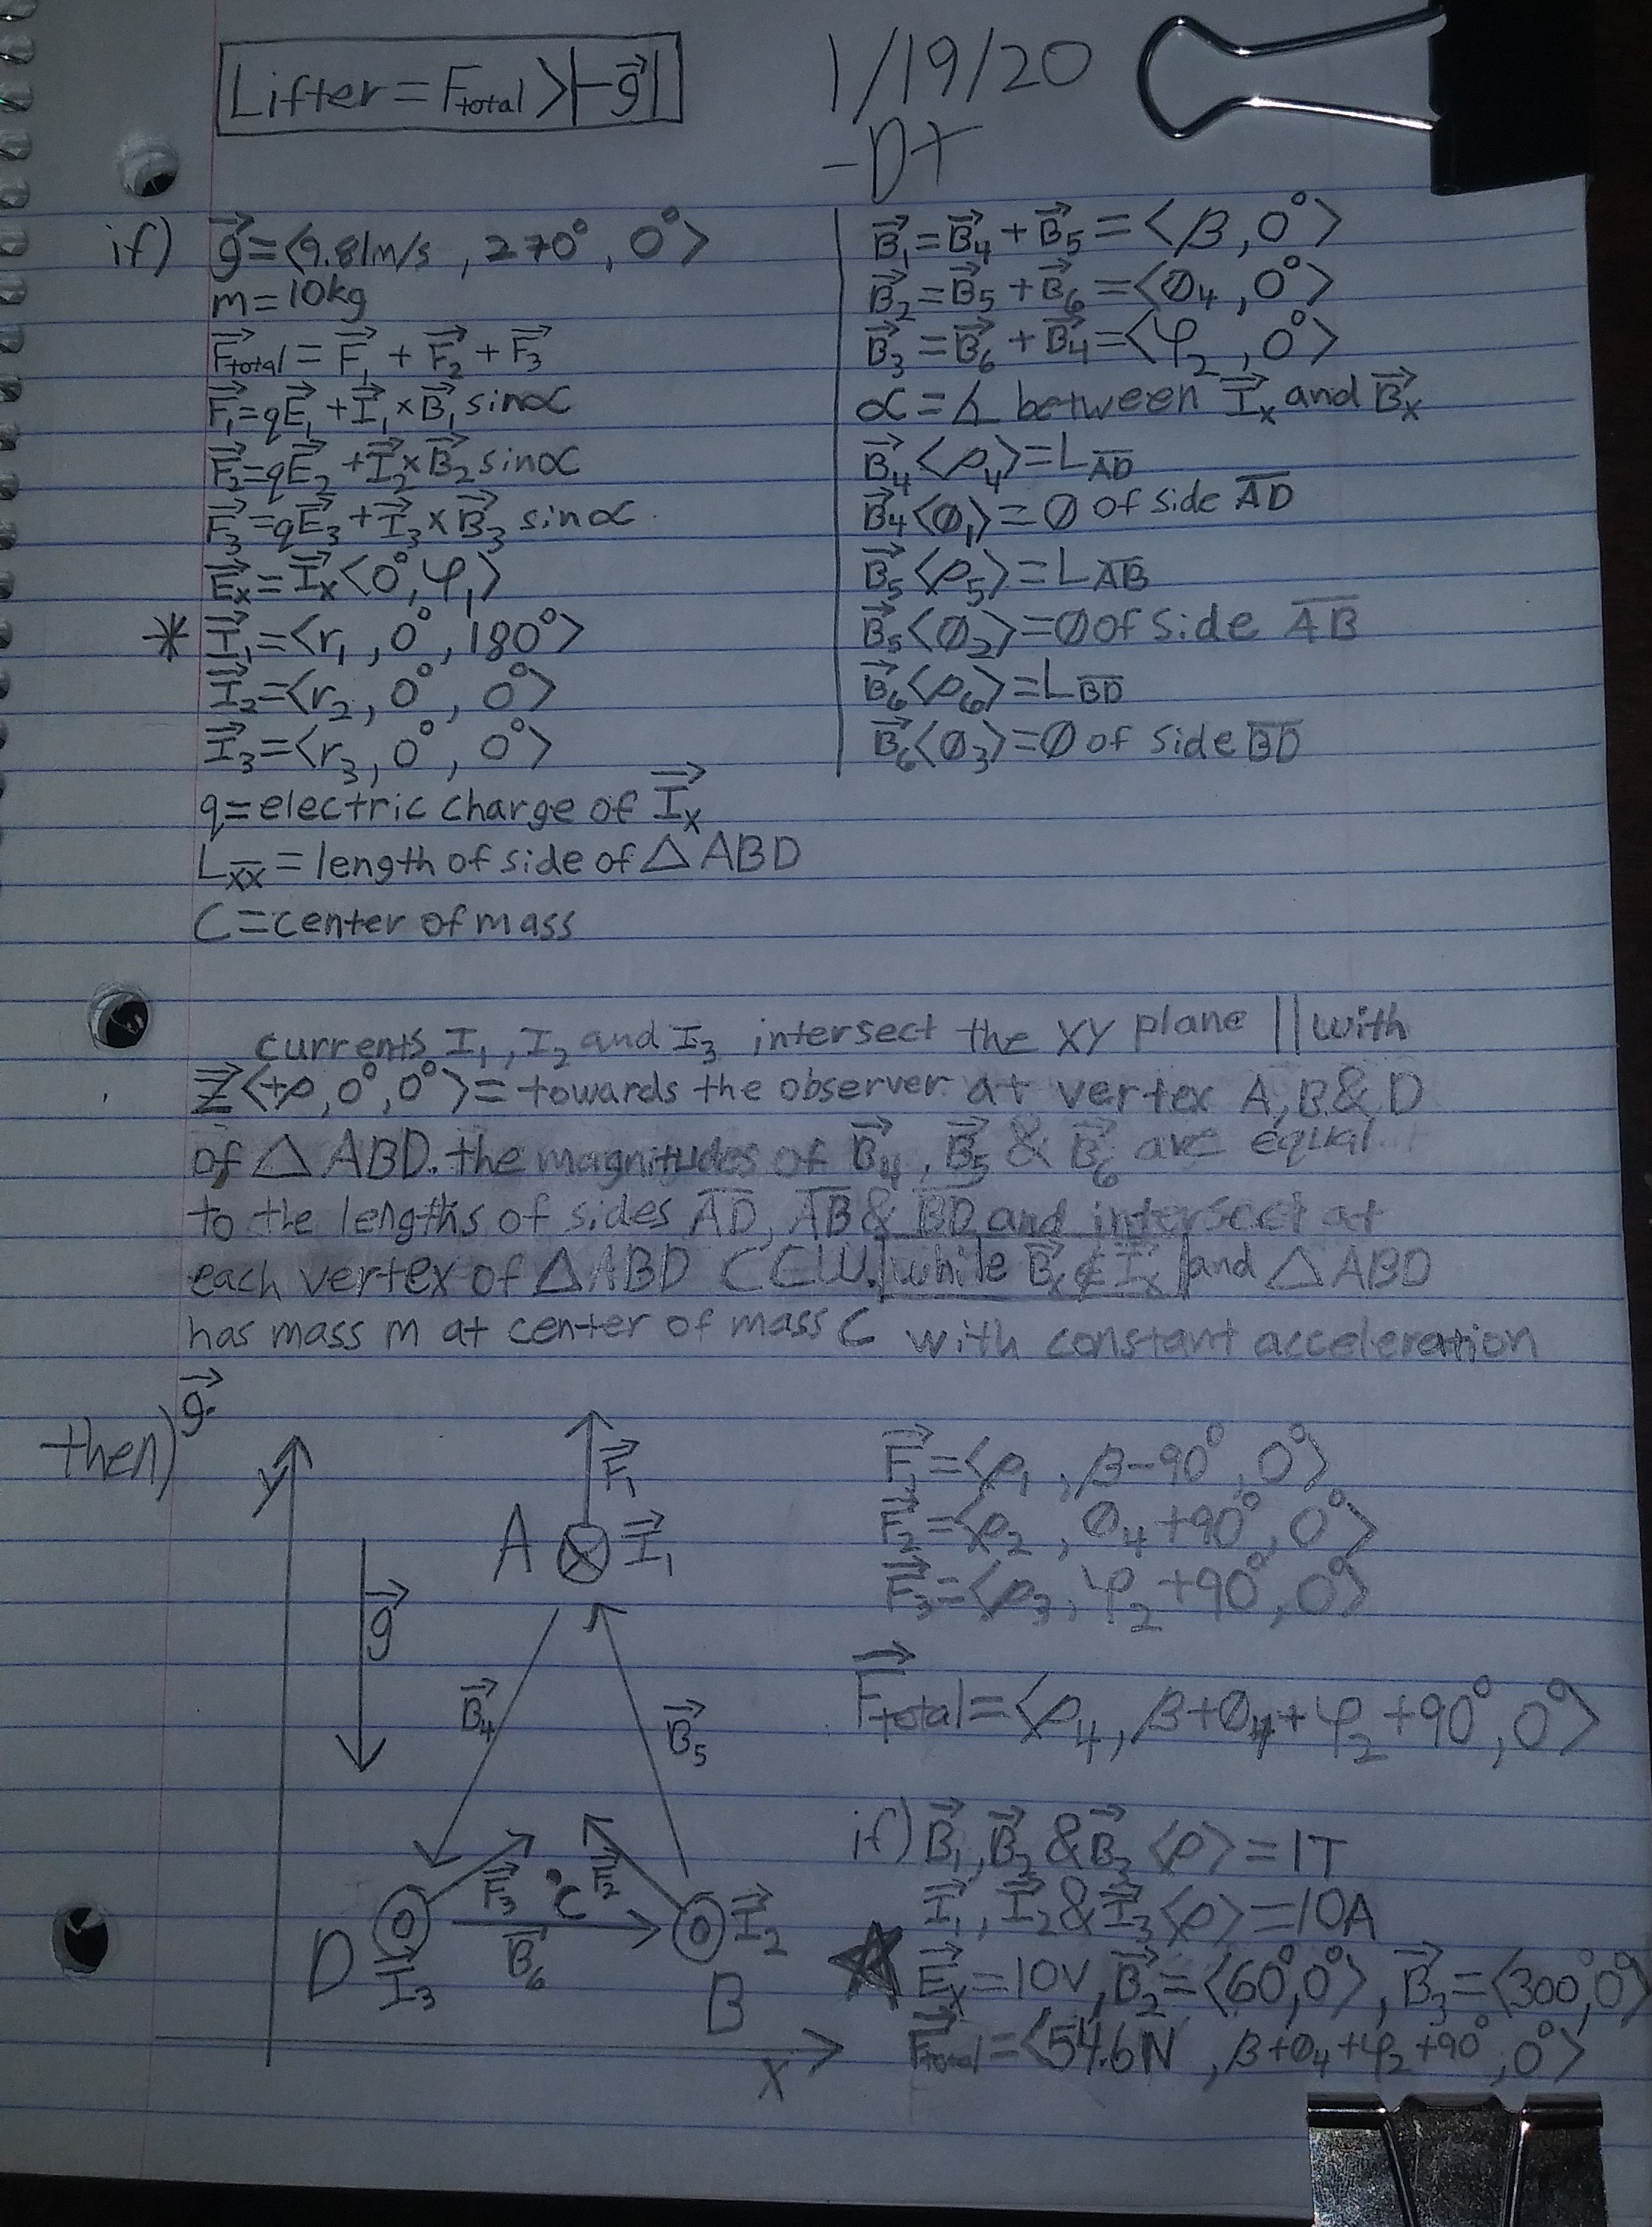 Lifter = Ftotal > |-g⃗|
1/19/20
-DT
if) g⃗ = ⟨9.81m/s, 270°, 0°⟩
m = 10kg
F⃗total = F⃗₁ + F⃗₂ + F⃗₃
F⃗₁ = qE⃗₁ + I⃗₁ × B⃗₁ sin∝
F⃗₂ = qE⃗₂ + I⃗₂ × B⃗₂ sin∝
F⃗₃ = qE⃗₃ + I⃗₃ × B⃗₃ sin∝
E⃗x = I⃗x⟨0°, φ₁⟩
* I⃗₁ = ⟨r₁, 0°, 180°⟩
I⃗₂ = ⟨r₂, 0°, 0°⟩
I⃗₃ = ⟨r₃, 0°, 0°⟩
q = electric charge of I⃗x
L_XX = length of side of △ABD
C = center of mass
B⃗₁ = B⃗₄ + B⃗₅ = ⟨β, 0°⟩
B⃗₂ = B⃗₅ + B⃗₆ = ⟨∅₄, 0°⟩
B⃗₃ = B⃗₆ + B⃗₄ = ⟨φ₂, 0°⟩
∝ = ∡ between I⃗x and B⃗x
B⃗₄⟨ρ₄⟩ = L_AD
B⃗₄⟨∅₁⟩ = ∅ of side AD
B⃗₅⟨ρ₅⟩ = L_AB
B⃗₅⟨∅₂⟩ = ∅ of side AB
B⃗₆⟨ρ₆⟩ = L_BD
B⃗₆⟨∅₃⟩ = ∅ of side BD
currents I₁, I₂ and I₃ intersect the XY plane || with
Z⃗⟨+ρ, 0°, 0°⟩ = towards the observer at vertex A, B & D
of △ABD. the magnitudes of B⃗₄, B⃗₅ & B⃗₆ are equal
to the lengths of sides AD, AB & BD and intersect at
each vertex of △ABD CCW. while B⃗x ∉ I⃗x and △ABD
has mass m at center of mass C with constant acceleration
g⃗.
then)
y
g⃗
F⃗₁
A
I⃗₁
B⃗₄
B⃗₅
F⃗₃
C
F⃗₂
D
I⃗₃
B⃗₆
I⃗₂
B
x
F⃗₁ = ⟨ρ₁, β-90°, 0°⟩
F⃗₂ = ⟨ρ₂, ∅₄+90°, 0°⟩
F⃗₃ = ⟨ρ₃, φ₂+90°, 0°⟩
F⃗total = ⟨ρ₄, β+∅₄+φ₂+90°, 0°⟩
if) B⃗₁, B⃗₂ & B⃗₃⟨ρ⟩ = 1T
I⃗₁, I⃗₂ & I⃗₃⟨ρ⟩ = 10A
☆ E⃗x = 10V, B⃗₂ = ⟨60°, 0°⟩, B⃗₃ = ⟨300°, 0°⟩
F⃗total = ⟨54.6N, β+∅₄+φ₂+90°, 0°⟩